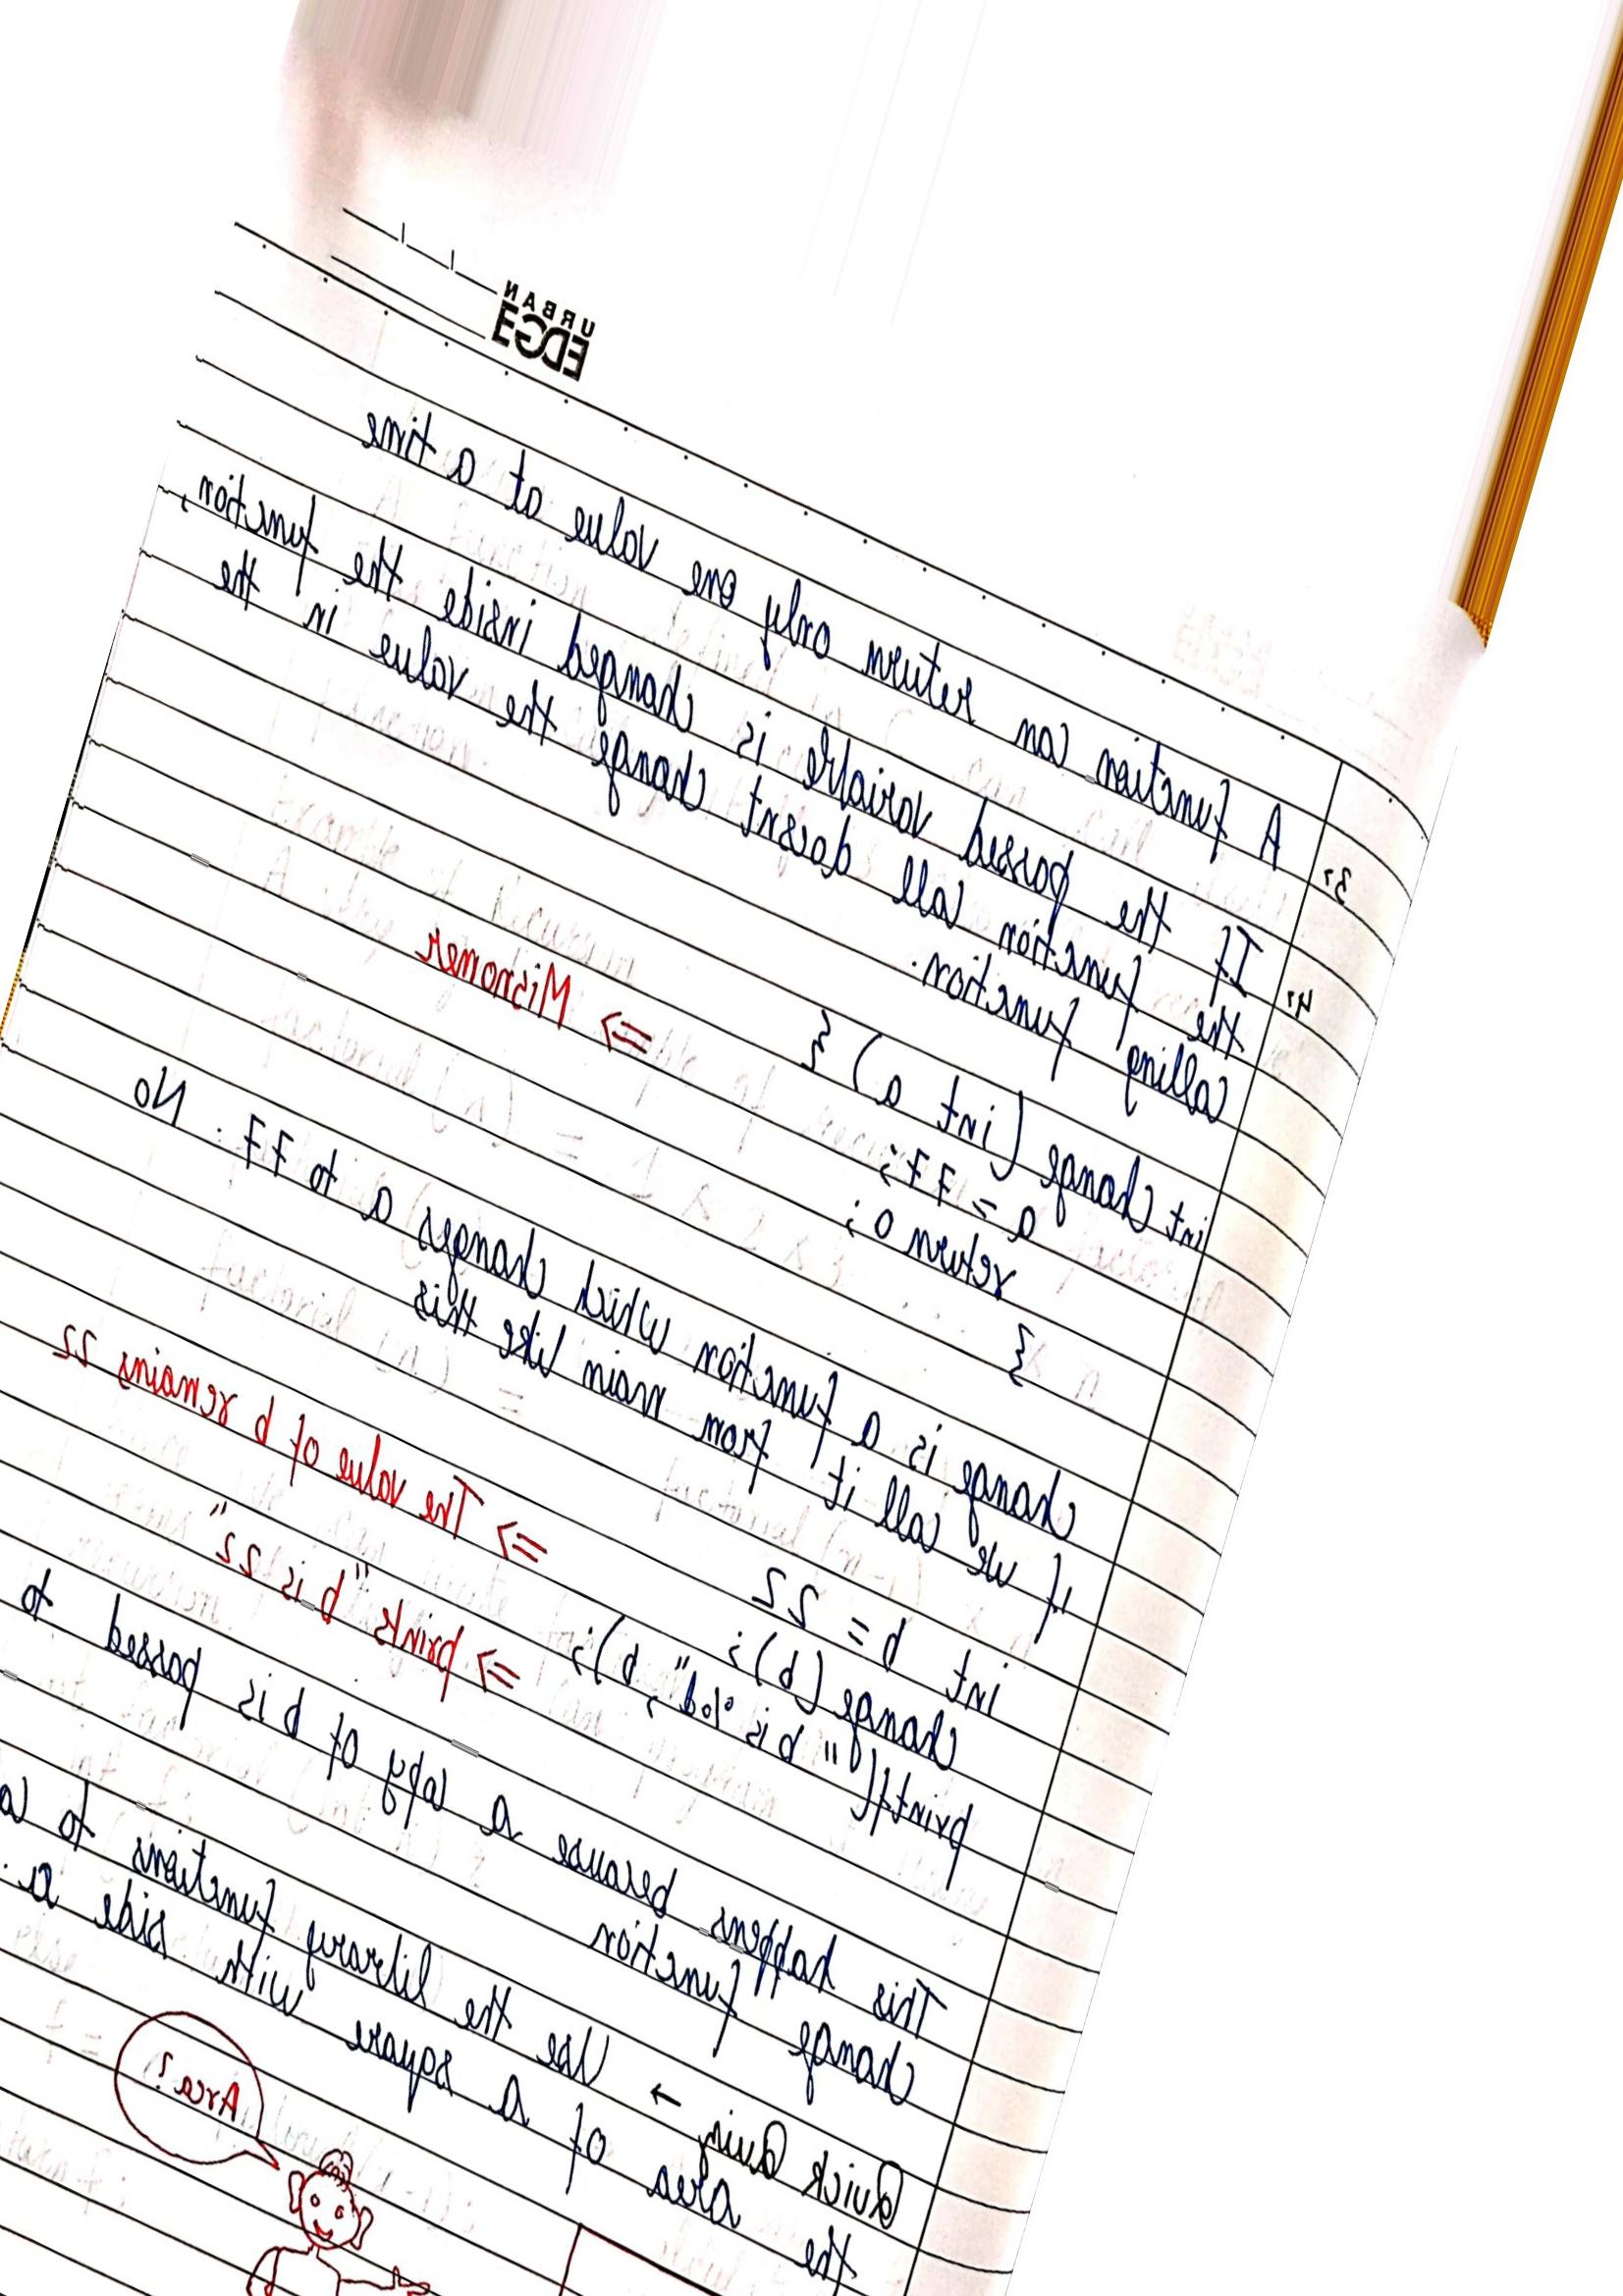 URBAN
EDGE
3, A function can return only one value at a time
4, If the passed variable is changed inside the function,
the function call doesnt change the value in the
calling function.
int change (int a) {
a = 77; ⇒ Misnomer
return 0;
}
change is a function which changes a to 77. No
if we call it from main like this
int b = 22
change (b); ⇒ The value of b remains 22
printf("b is %d", b); ⇒ prints "b is 22"
This happens because a copy of b is passed to
change function
Quick Quiz → Use the library functions to
the area of a square with side a.
Area?